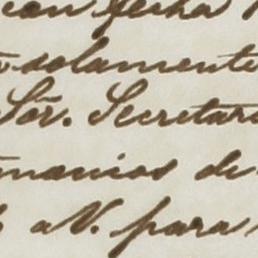 con fecha
solamente
Sõr. Secretari
manios de
a V. para